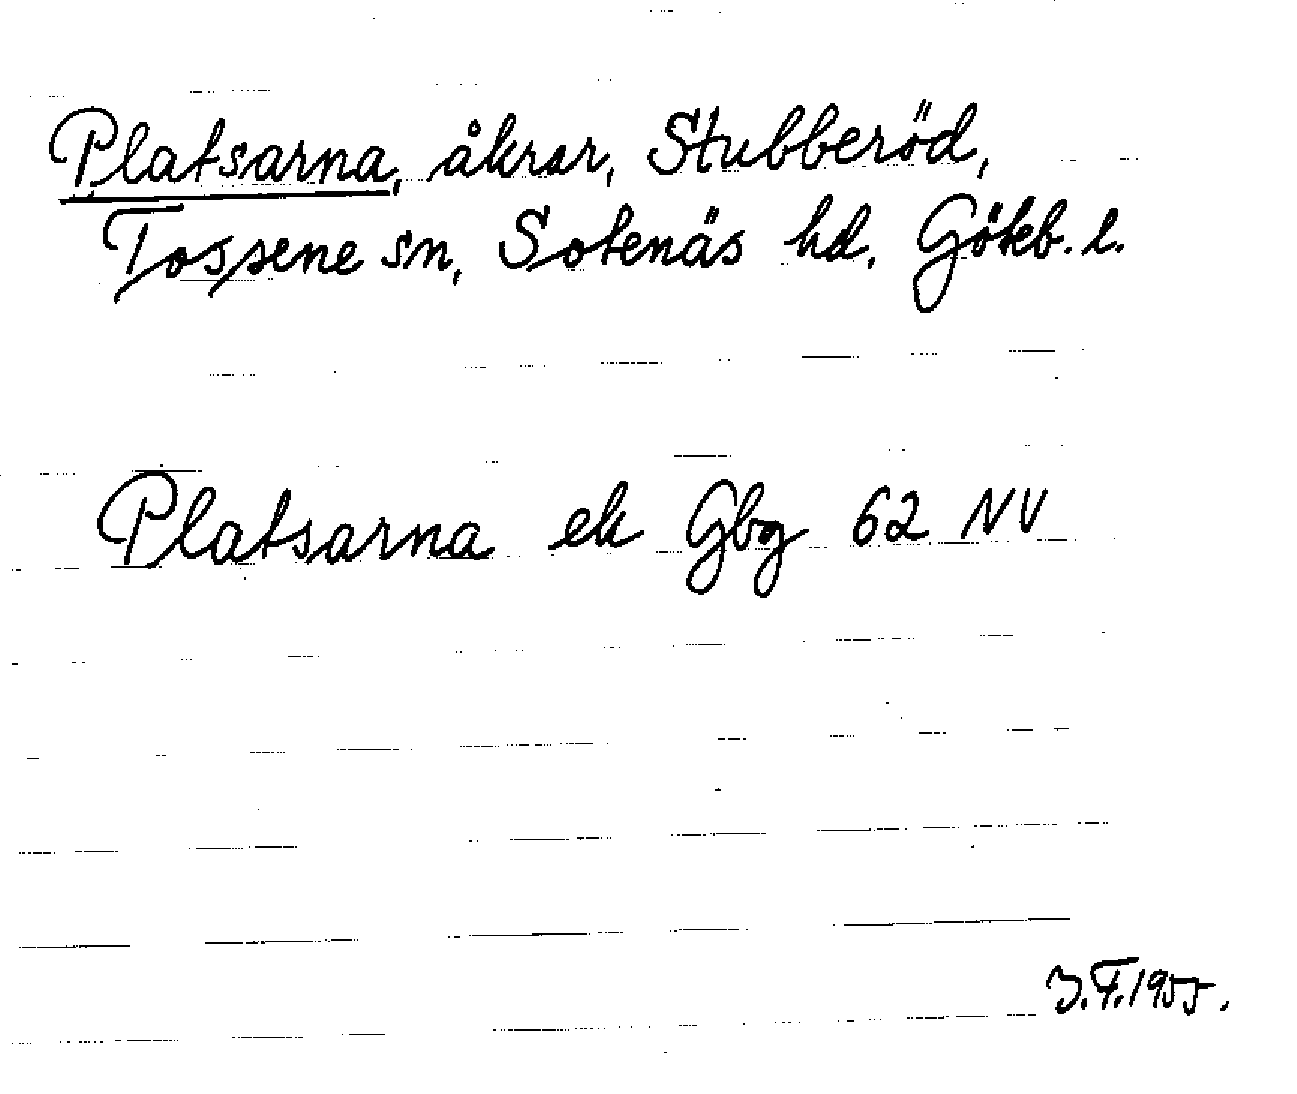 Platsarna, åkrar, Stubberöd,
Tossene sn, Sotenäs hd, Göteb. l.
Platsarna ek Gbg 62 NV
J.F. 1955.